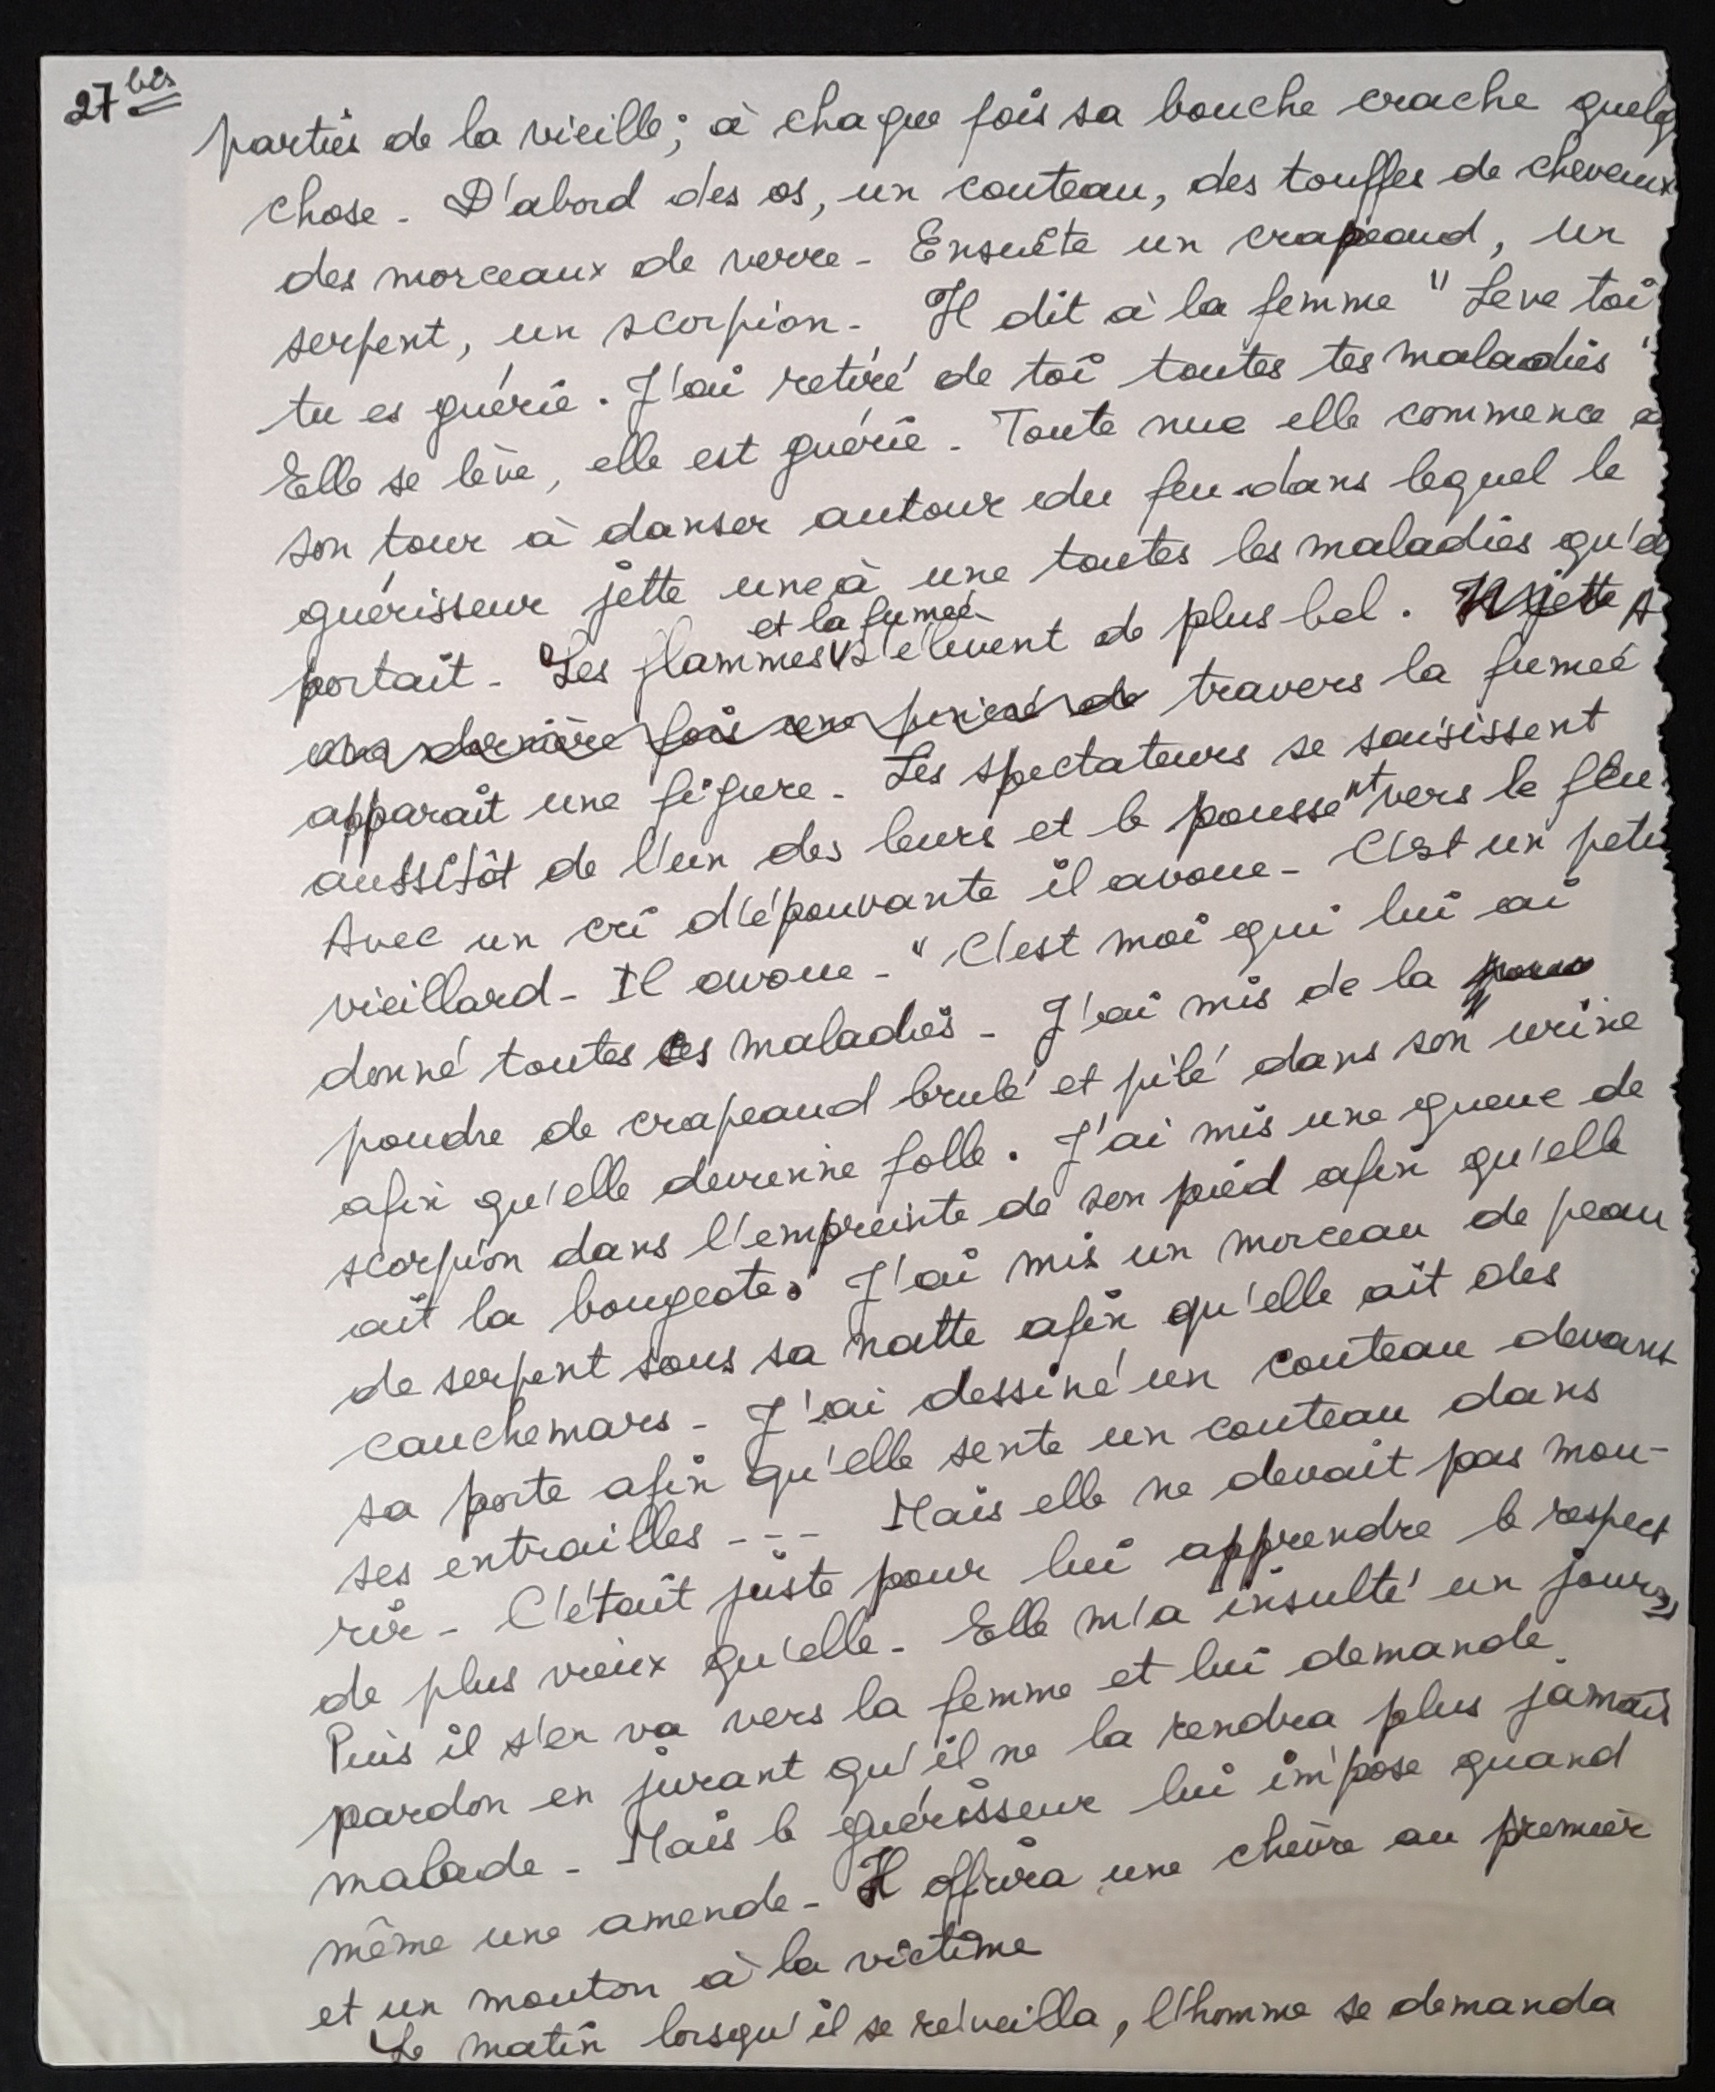 27 bis
parties de la vieille; à chaque fois sa bouche crache quelq
chose - D'abord des os, un couteau, des touffes de cheveux
des morceaux de verre - Ensuite un crapeaud, un
serpent, un scorpion - Il dit à la femme " Leve toi
tu es guérie. J'ai retiré de toi toutes tes maladies "
Elle se lève, elle est guérie - Toute nue elle commence à
son tour à danser autour du feu dans lequel le
guérisseur jette une à une toutes les maladies qu'e
et la fumeé
portait - Les flammes s'élèvent de plus bel. Il jette A
une dernière fois une pincée de travers la fumeé
apparaît une figure - Les spectateurs se saisissent
aussitôt de l'un des leurs et le poussent vers le feu
Avec un cri d'épouvante il avoue - C'est un petit
vieillard - Il avoue - " C'est moi qui lui ai
donné toutes ces maladies - J'ai mis de la
poudre de crapeaud brulé et pilé dans son urine
afin qu'elle devienne folle. J'ai mis une queue de
scorpion dans l'empreinte de son pied afin qu'elle
ait la bougeote. J'ai mis un morceau de peau
de serpent sous sa natte afin qu'elle ait des
cauchemars - J'ai dessiné un couteau devant
sa porte afin qu'elle sente un couteau dans
ses entrailles - - - Mais elle ne devait pas mou-
rir - C'était juste pour lui apprendre le respect
de plus vieux qu'elle - Elle m'a insulté un jour »
Puis il s'en va vers la femme et lui demande
pardon en jurant qu'il ne la rendra plus jamais
malade - Mais le guérisseur lui impose quand
même une amende - Il offrira une chèvre au premier
et un mouton à la victime
Le matin lorsqu'il se réveilla, l'homme se demanda